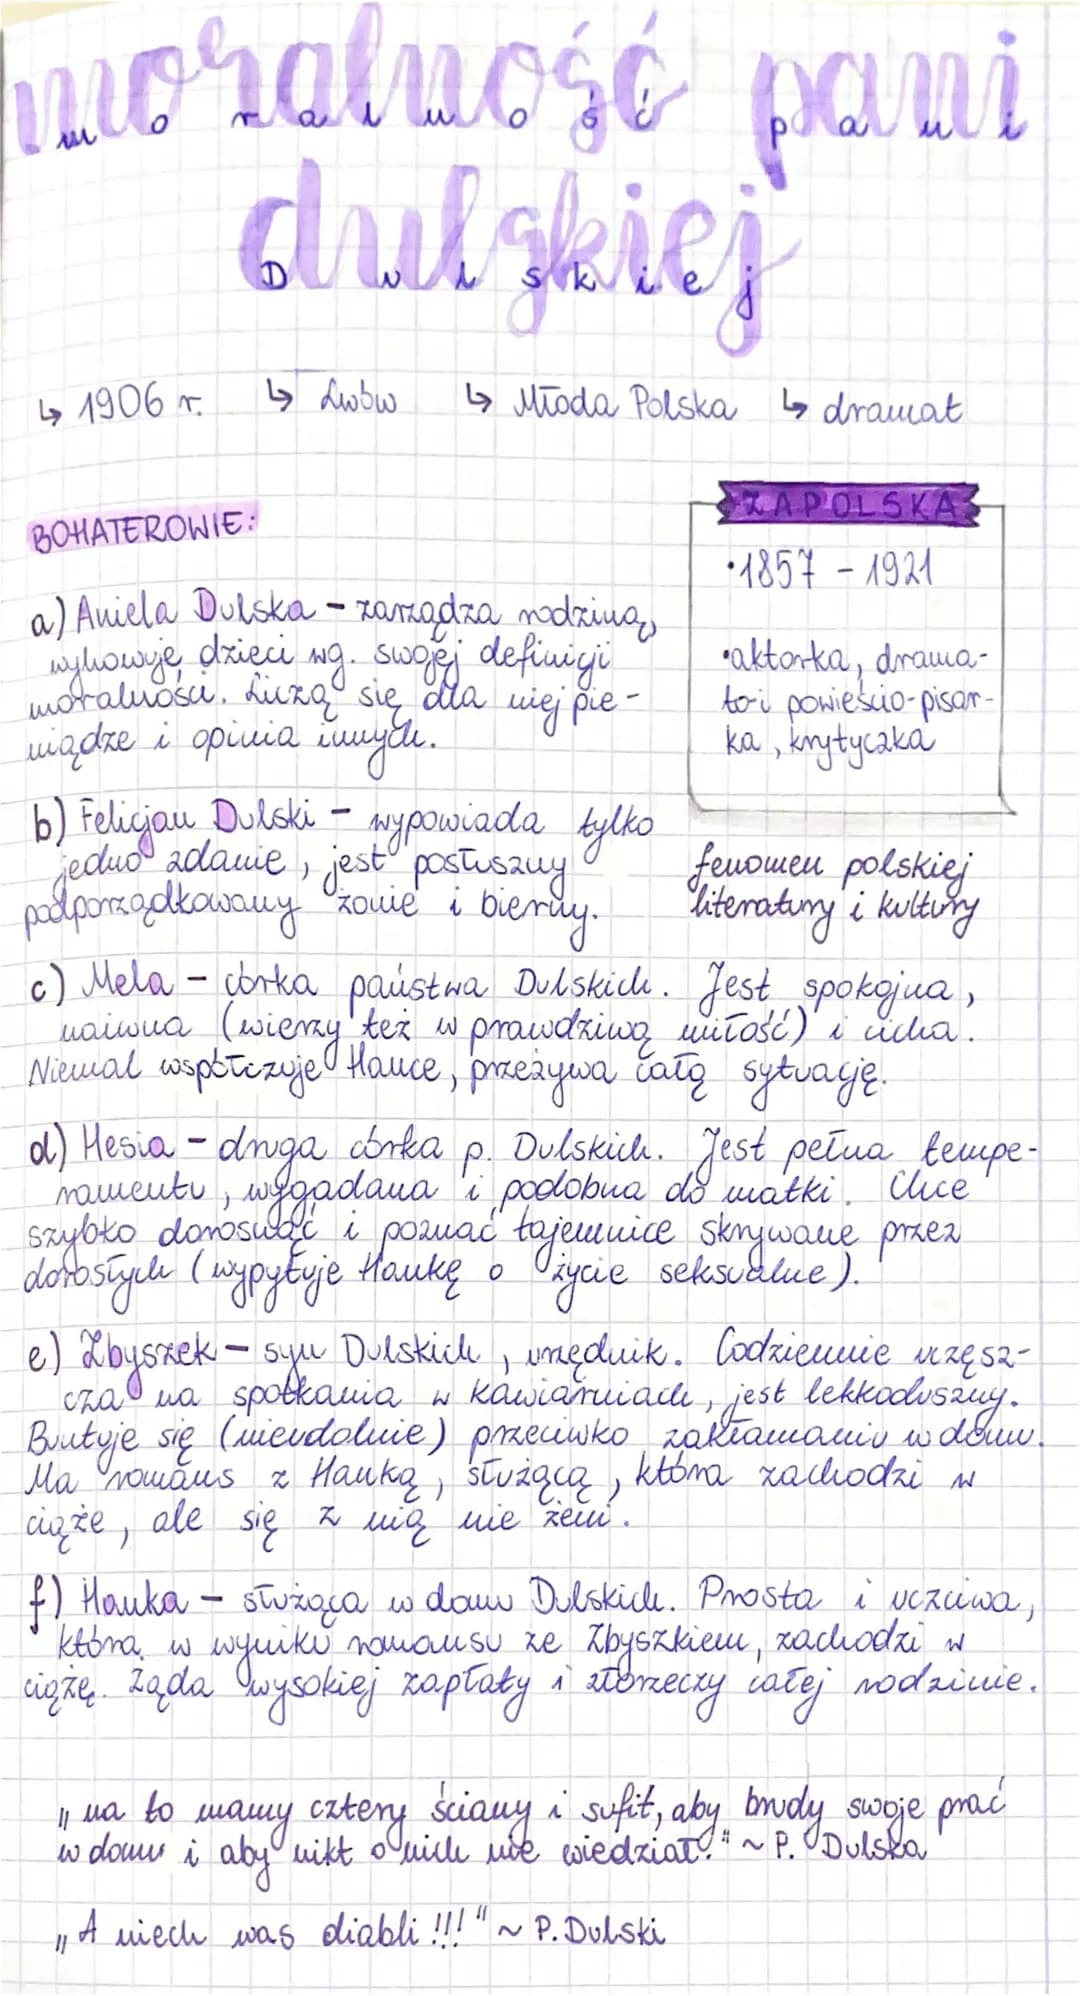 moralność pani
m o r a l n o ś ć p a n i
dulskiej
D u l s k i e j
↳ 1906 r. ↳ Lwów ↳ Młoda Polska ↳ dramat
ZAPOLSKA
•1857 - 1921
•aktorka, drama-
to-i powieścio-pisar-
ka, krytyczka
fenomen polskiej
literatury i kultury
BOHATEROWIE:
a) Aniela Dulska - zarządza rodziną,
wyhowuje dzieci wg. swojej definicji
moralności. Liczą się dla niej pie-
niądze i opinia innych.
b) Felicjan Dulski - wypowiada tylko
jedno zdanie, jest posłuszny
podporządkowany żonie i bierny.
c) Mela - córka państwa Dulskich. Jest spokojna,
naiwna (wierzy też w prawdziwą miłość) i cicha.
Niemal współczuje Hance, przeżywa całą sytuację.
d) Hesia - druga córka p. Dulskich. Jest pełna tempe-
ramentu, wygadana i podobna do matki. Chce
szybko dorosnąć i poznać tajemnice skrywane przez
dorosłych (wypytuje Hankę o życie seksualne).
e) Zbyszek - syn Dulskich, urzędnik. Codziennie uczęsz-
cza na spotkania w kawiarniach, jest lekkoduszny.
Buntuje się (nieudolnie) przeciwko zakłamaniu w domu.
Ma romans z Hanką, służącą, która zachodzi w
ciąże, ale się z nią nie żeni.
f) Hanka - służąca w domu Dulskich. Prosta i uczciwa,
która w wyniku romansu ze Zbyszkiem, zachodzi w
ciążę. Żąda wysokiej zapłaty i złorzeczy całej rodzinie.
„na to mamy cztery ściany i sufit, aby brudy swoje prać
w domu i aby nikt o nich nie wiedział." ~ P. Dulska
„A niech was diabli!!!" ~ P. Dulski